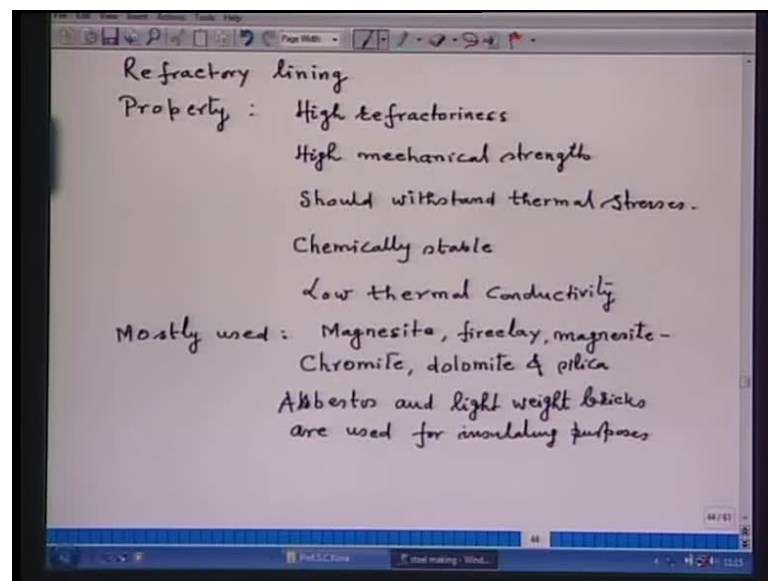 File Edit View Insert Actions Tools Help
Page Width
Refractory lining
Property : High refractoriness
High mechanical strength
Should withstand thermal stresses.
Chemically stable
Low thermal conductivity
Mostly used : Magnesite, fireclay, magnesite -
Chromite, dolomite & silica
Asbestos and light weight bricks
are used for insulating purposes
44/61
44
Prof.S.C.Koria
steel making - Wind...
11:15